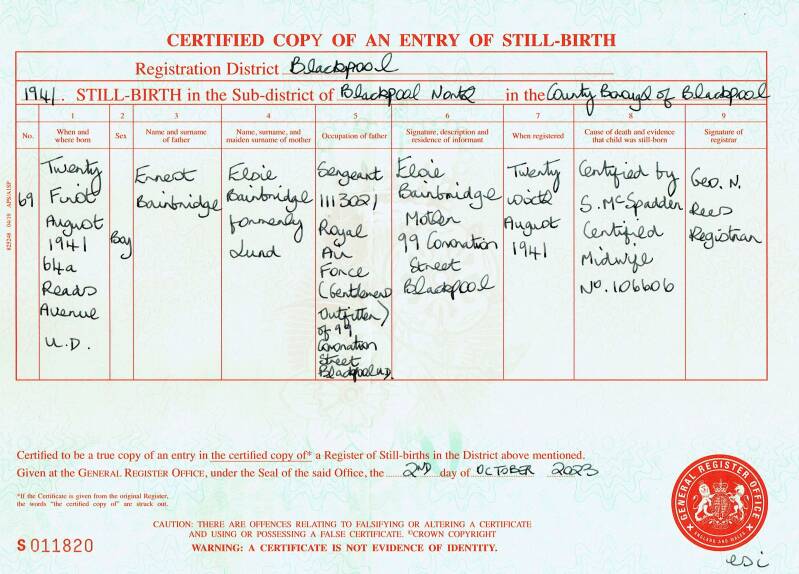 CERTIFIED COPY OF AN ENTRY OF STILL-BIRTH
Registration District Blackpool
1941. STILL-BIRTH in the Sub-district of Blackpool North in the County Borough of Blackpool
1 2 3 4 5 6 7 8 9
No. When and where born Sex Name and surname of father Name, surname, and maiden surname of mother Occupation of father Signature, description and residence of informant When registered Cause of death and evidence that child was still-born Signature of registrar
69
Twenty
First
August
1941
64a
Reads
Avenue
U.D.
Boy
Ernest
Bainbridge
Elsie
Bainbridge
formerly
Lund
Sergeant
1113021
Royal
Air
Force
(Gentlemens
Outfitter)
of 99
Coronation
Street
Blackpool U.D.
Elsie
Bainbridge
Mother
99 Coronation
Street
Blackpool
Twenty
sixth
August
1941
Certified by
S. McSpadden
Certified
Midwife
No. 106606
Geo. N.
Rees
Registrar
825248 04/19 APS/A1SP
Certified to be a true copy of an entry in the certified copy of* a Register of Still-births in the District above mentioned.
Given at the GENERAL REGISTER OFFICE, under the Seal of the said Office, the 2ND day of OCTOBER 2023
*If the Certificate is given from the original Register,
the words "the certified copy of" are struck out.
CAUTION: THERE ARE OFFENCES RELATING TO FALSIFYING OR ALTERING A CERTIFICATE
AND USING OR POSSESSING A FALSE CERTIFICATE. ©CROWN COPYRIGHT
WARNING: A CERTIFICATE IS NOT EVIDENCE OF IDENTITY.
S 011820
GENERAL REGISTER OFFICE
ENGLAND AND WALES